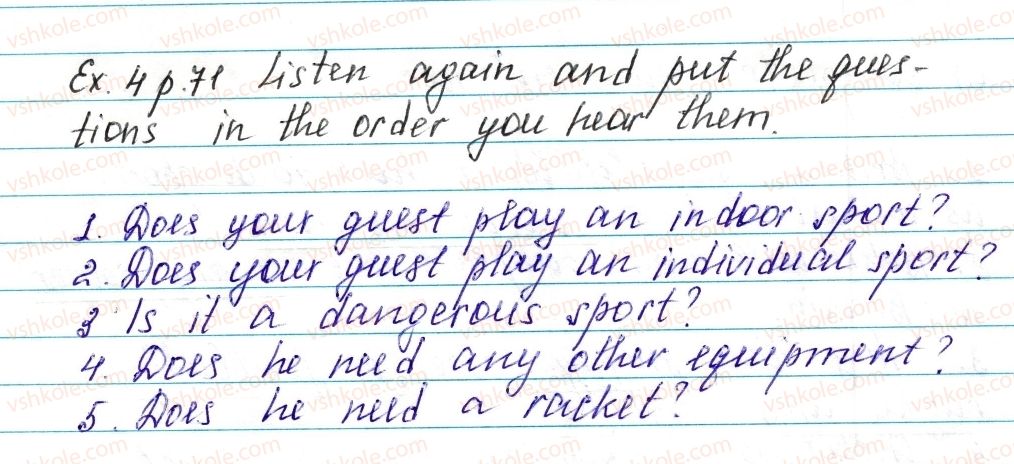 Ex. 4 p.71 Listen again and put the ques-
tions in the order you hear them.
1. Does your guest play an indoor sport?
2. Does your guest play an individual sport?
3 Is it a dangerous sport?
4. Does he need any other equipment?
5. Does he need a racket?